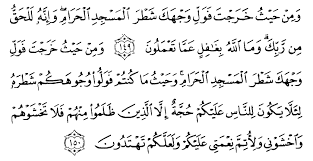 وَمِنْ حَيْثُ خَرَجْتَ فَوَلِّ وَجْهَكَ شَطْرَ ٱلْمَسْجِدِ ٱلْحَرَامِ وَإِنَّهُۥ لَلْحَقُّ
مِن رَّبِّكَ وَمَا ٱللَّهُ بِغَٰفِلٍ عَمَّا تَعْمَلُونَ ١٤٩ وَمِنْ حَيْثُ خَرَجْتَ فَوَلِّ
وَجْهَكَ شَطْرَ ٱلْمَسْجِدِ ٱلْحَرَامِ وَحَيْثُ مَا كُنتُمْ فَوَلُّوا۟ وُجُوهَكُمْ شَطْرَهُۥ
لِئَلَّا يَكُونَ لِلنَّاسِ عَلَيْكُمْ حُجَّةٌ إِلَّا ٱلَّذِينَ ظَلَمُوا۟ مِنْهُمْ فَلَا تَخْشَوْهُمْ
وَٱخْشَوْنِى وَلِأُتِمَّ نِعْمَتِى عَلَيْكُمْ وَلَعَلَّكُمْ تَهْتَدُونَ ١٥٠